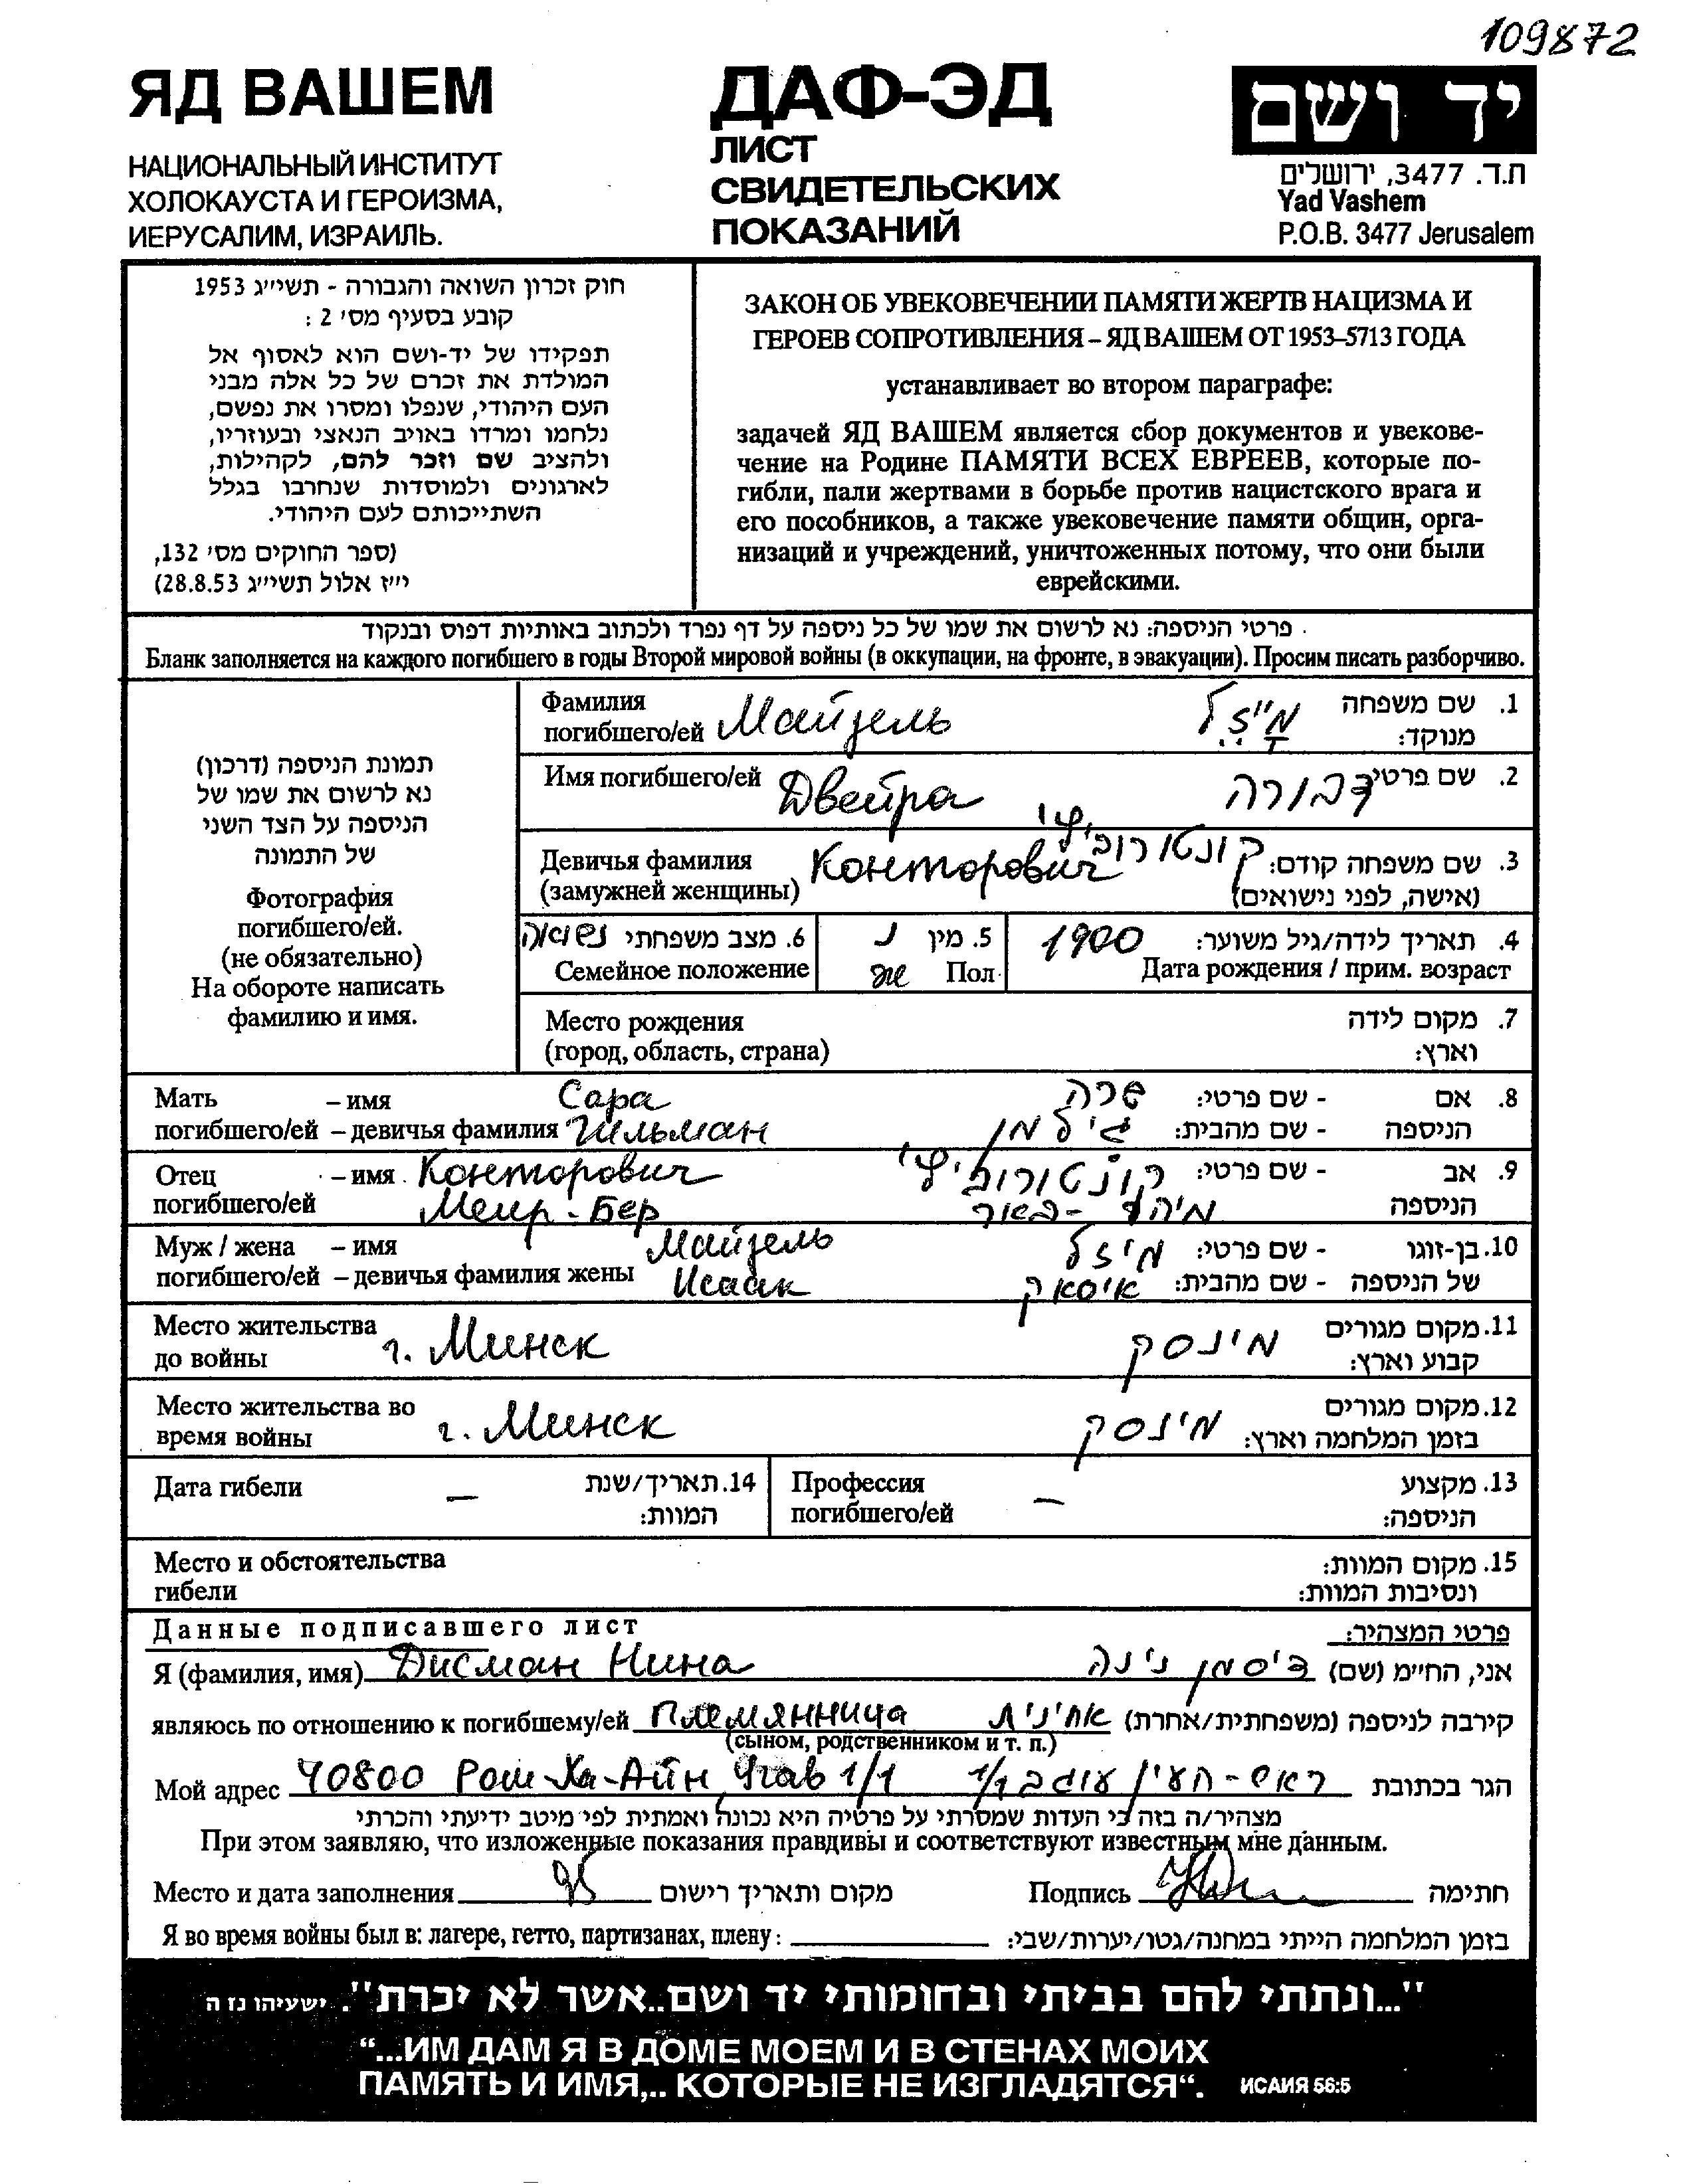 109872
ЯД ВАШЕМ
НАЦИОНАЛЬНЫЙ ИНСТИТУТ
ХОЛОКАУСТА И ГЕРОИЗМА,
ИЕРУСАЛИМ, ИЗРАИЛЬ.
ДАФ-ЭД
ЛИСТ
СВИДЕТЕЛЬСКИХ
ПОКАЗАНИЙ
יד ושם
ת.ד. 3477, ירושלים
Yad Vashem
P.O.B. 3477 Jerusalem
חוק זכרון השואה והגבורה - תשי״ג 1953
קובע בסעיף מס׳ 2 :
תפקידו של יד-ושם הוא לאסוף אל
המולדת את זכרם של כל אלה מבני
העם היהודי, שנפלו ומסרו את נפשם,
נלחמו ומרדו באויב הנאצי ובעוזריו,
ולהציב שם וזכר להם, לקהילות,
לארגונים ולמוסדות שנחרבו בגלל
השתייכותם לעם היהודי.
(ספר החוקים מס׳ 132,
י״ז אלול תשי״ג 28.8.53)
ЗАКОН ОБ УВЕКОВЕЧЕНИИ ПАМЯТИ ЖЕРТВ НАЦИЗМА И
ГЕРОЕВ СОПРОТИВЛЕНИЯ – ЯД ВАШЕМ ОТ 1953–5713 ГОДА
устанавливает во втором параграфе:
задачей ЯД ВАШЕМ является сбор документов и увекове-
чение на Родине ПАМЯТИ ВСЕХ ЕВРЕЕВ, которые по-
гибли, пали жертвами в борьбе против нацистского врага и
его пособников, а также увековечение памяти общин, орга-
низаций и учреждений, уничтоженных потому, что они были
еврейскими.
פרטי הניספה: נא לרשום את שמו של כל ניספה על דף נפרד ולכתוב באותיות דפוס ובנקוד
Бланк заполняется на каждого погибшего в годы Второй мировой войны (в оккупации, на фронте, в эвакуации). Просим писать разборчиво.
תמונת הניספה (דרכון)
נא לרשום את שמו של
הניספה על הצד השני
של התמונה
Фотография
погибшего/ей.
(не обязательно)
На обороте написать
фамилию и имя.
Фамилия
погибшего/ей Майзель
1. שם משפחה
מנוקד: מַיְיזֵל
Имя погибшего/ей Двейра
2. שם פרטי דבורה
Девичья фамилия
(замужней женщины) Конторович
3. שם משפחה קודם: קונטורוביץ'
(אישה, לפני נישואים)
4. תאריך לידה/גיל משוער: 1900
Дата рождения / прим. возраст
5. מין נ
Пол ж
6. מצב משפחתי נשואה
Семейное положение
Место рождения
(город, область, страна)
7. מקום לידה
וארץ:
Мать – имя Сара
погибшего/ей – девичья фамилия Гильман
8. אם - שם פרטי: שרה
הניספה - שם מהבית: גילמן
Отец – имя Конторович
погибшего/ей Меир-Бер
9. אב - שם פרטי: קונטורוביץ'
הניספה
Муж / жена – имя Майзель
погибшего/ей – девичья фамилия жены Исаак
10. בן-זוגו - שם פרטי: מיזל
של הניספה - שם מהבית: איסאק
Место жительства
до войны г. Минск
11. מקום מגורים
קבוע וארץ: מינסק
Место жительства во
время войны г. Минск
12. מקום מגורים
בזמן המלחמה וארץ: מינסק
Дата гибели –
14. תאריך/שנת
המוות:
Профессия
погибшего/ей –
13. מקצוע
הניספה:
Место и обстоятельства
гибели
15. מקום המוות:
ונסיבות המוות:
Данные подписавшего лист
פרטי המצהיר:
Я (фамилия, имя) Дисман Нина
אני, החי״מ (שם) דיסמן נינה
являюсь по отношению к погибшему/ей Племянница
(сыном, родственником и т. п.)
קירבה לניספה (משפחתית/אחרת) אחינית
Мой адрес 40800 Рош-Ха-Айн Угав 1/1
הגר בכתובת ראש-העין עוגב 1/1
מצהיר/ה בזה כי העדות שמסרתי על פרטיה היא נכונה ואמתית לפי מיטב ידיעתי והכרתי
При этом заявляю, что изложенные показания правдивы и соответствуют известным мне данным.
Место и дата заполнения 95 מקום ותאריך רישום
Подпись חתימה
Я во время войны был в: лагере, гетто, партизанах, плену:
בזמן המלחמה הייתי במחנה/גטו/יערות/שבי:
"...ונתתי להם בביתי ובחומותי יד ושם..אשר לא יכרת". ישעיהו נז ה
“...ИМ ДАМ Я В ДОМЕ МОЕМ И В СТЕНАХ МОИХ
ПАМЯТЬ И ИМЯ,.. КОТОРЫЕ НЕ ИЗГЛАДЯТСЯ“. ИСАИЯ 56:5